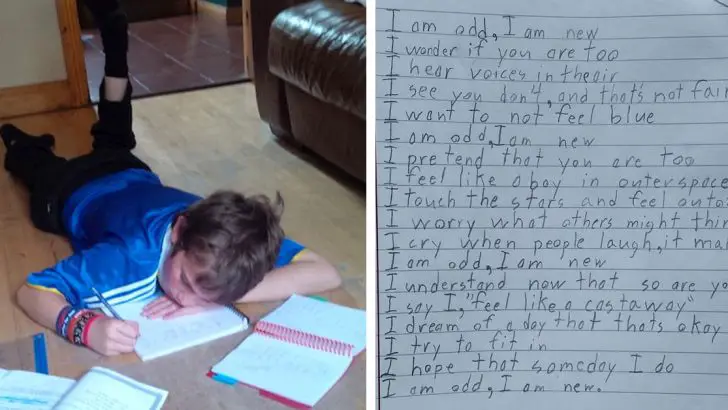 I am odd, I am new
I wonder if you are too
I hear voices in the air
I see you don't, and that's not fair
I want to not feel blue
I am odd, I am new
I pretend that you are too
I feel like a boy in outerspace
I touch the stars and feel outo
I worry what others might thin
I cry when people laugh, it ma
I am odd, I am new
I understand now that so are yo
I say I, "feel like a castaway"
I dream of a day that thats okay
I try to fit in
I hope that someday I do
I am odd, I am new.